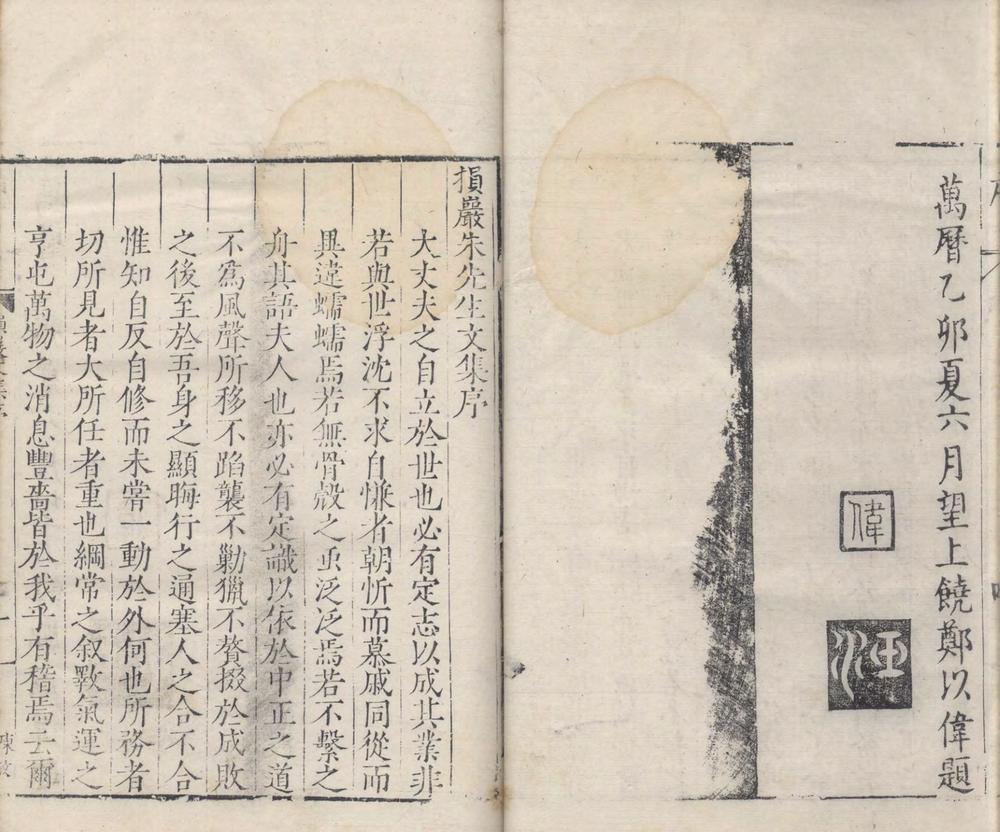 萬曆乙卯夏六月望上饒鄭以偉題
偉
損巖朱先生文集序
大丈夫之自立於世也必有定志以成其業非
若與世浮沈不求自慊者朝忻而慕戚同從而
異違蠕蠕焉若無骨殼之䖝泛泛焉若不繫之
舟其語夫人也亦必有定識以依於中正之道
不為風聲所移不蹈襲不勦獵不贅掇於成敗
之後至於吾身之顯晦行之通塞人之合不合
惟知自反自修而未甞一動於外何也所務者
切所見者大所任者重也綱常之叙斁氣運之
亨屯萬物之消息豐嗇皆於我乎有稽焉云爾